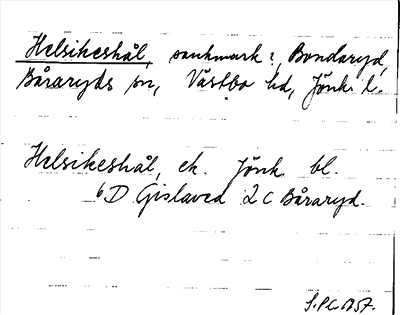 Helsikeshål, sankmark i Bondaryd,
Båraryds sn, Västbo hd, Jönk. l.
Helsikeshål, ek. Jönk. bl.
6D Gislaved 2 C Båraryd.